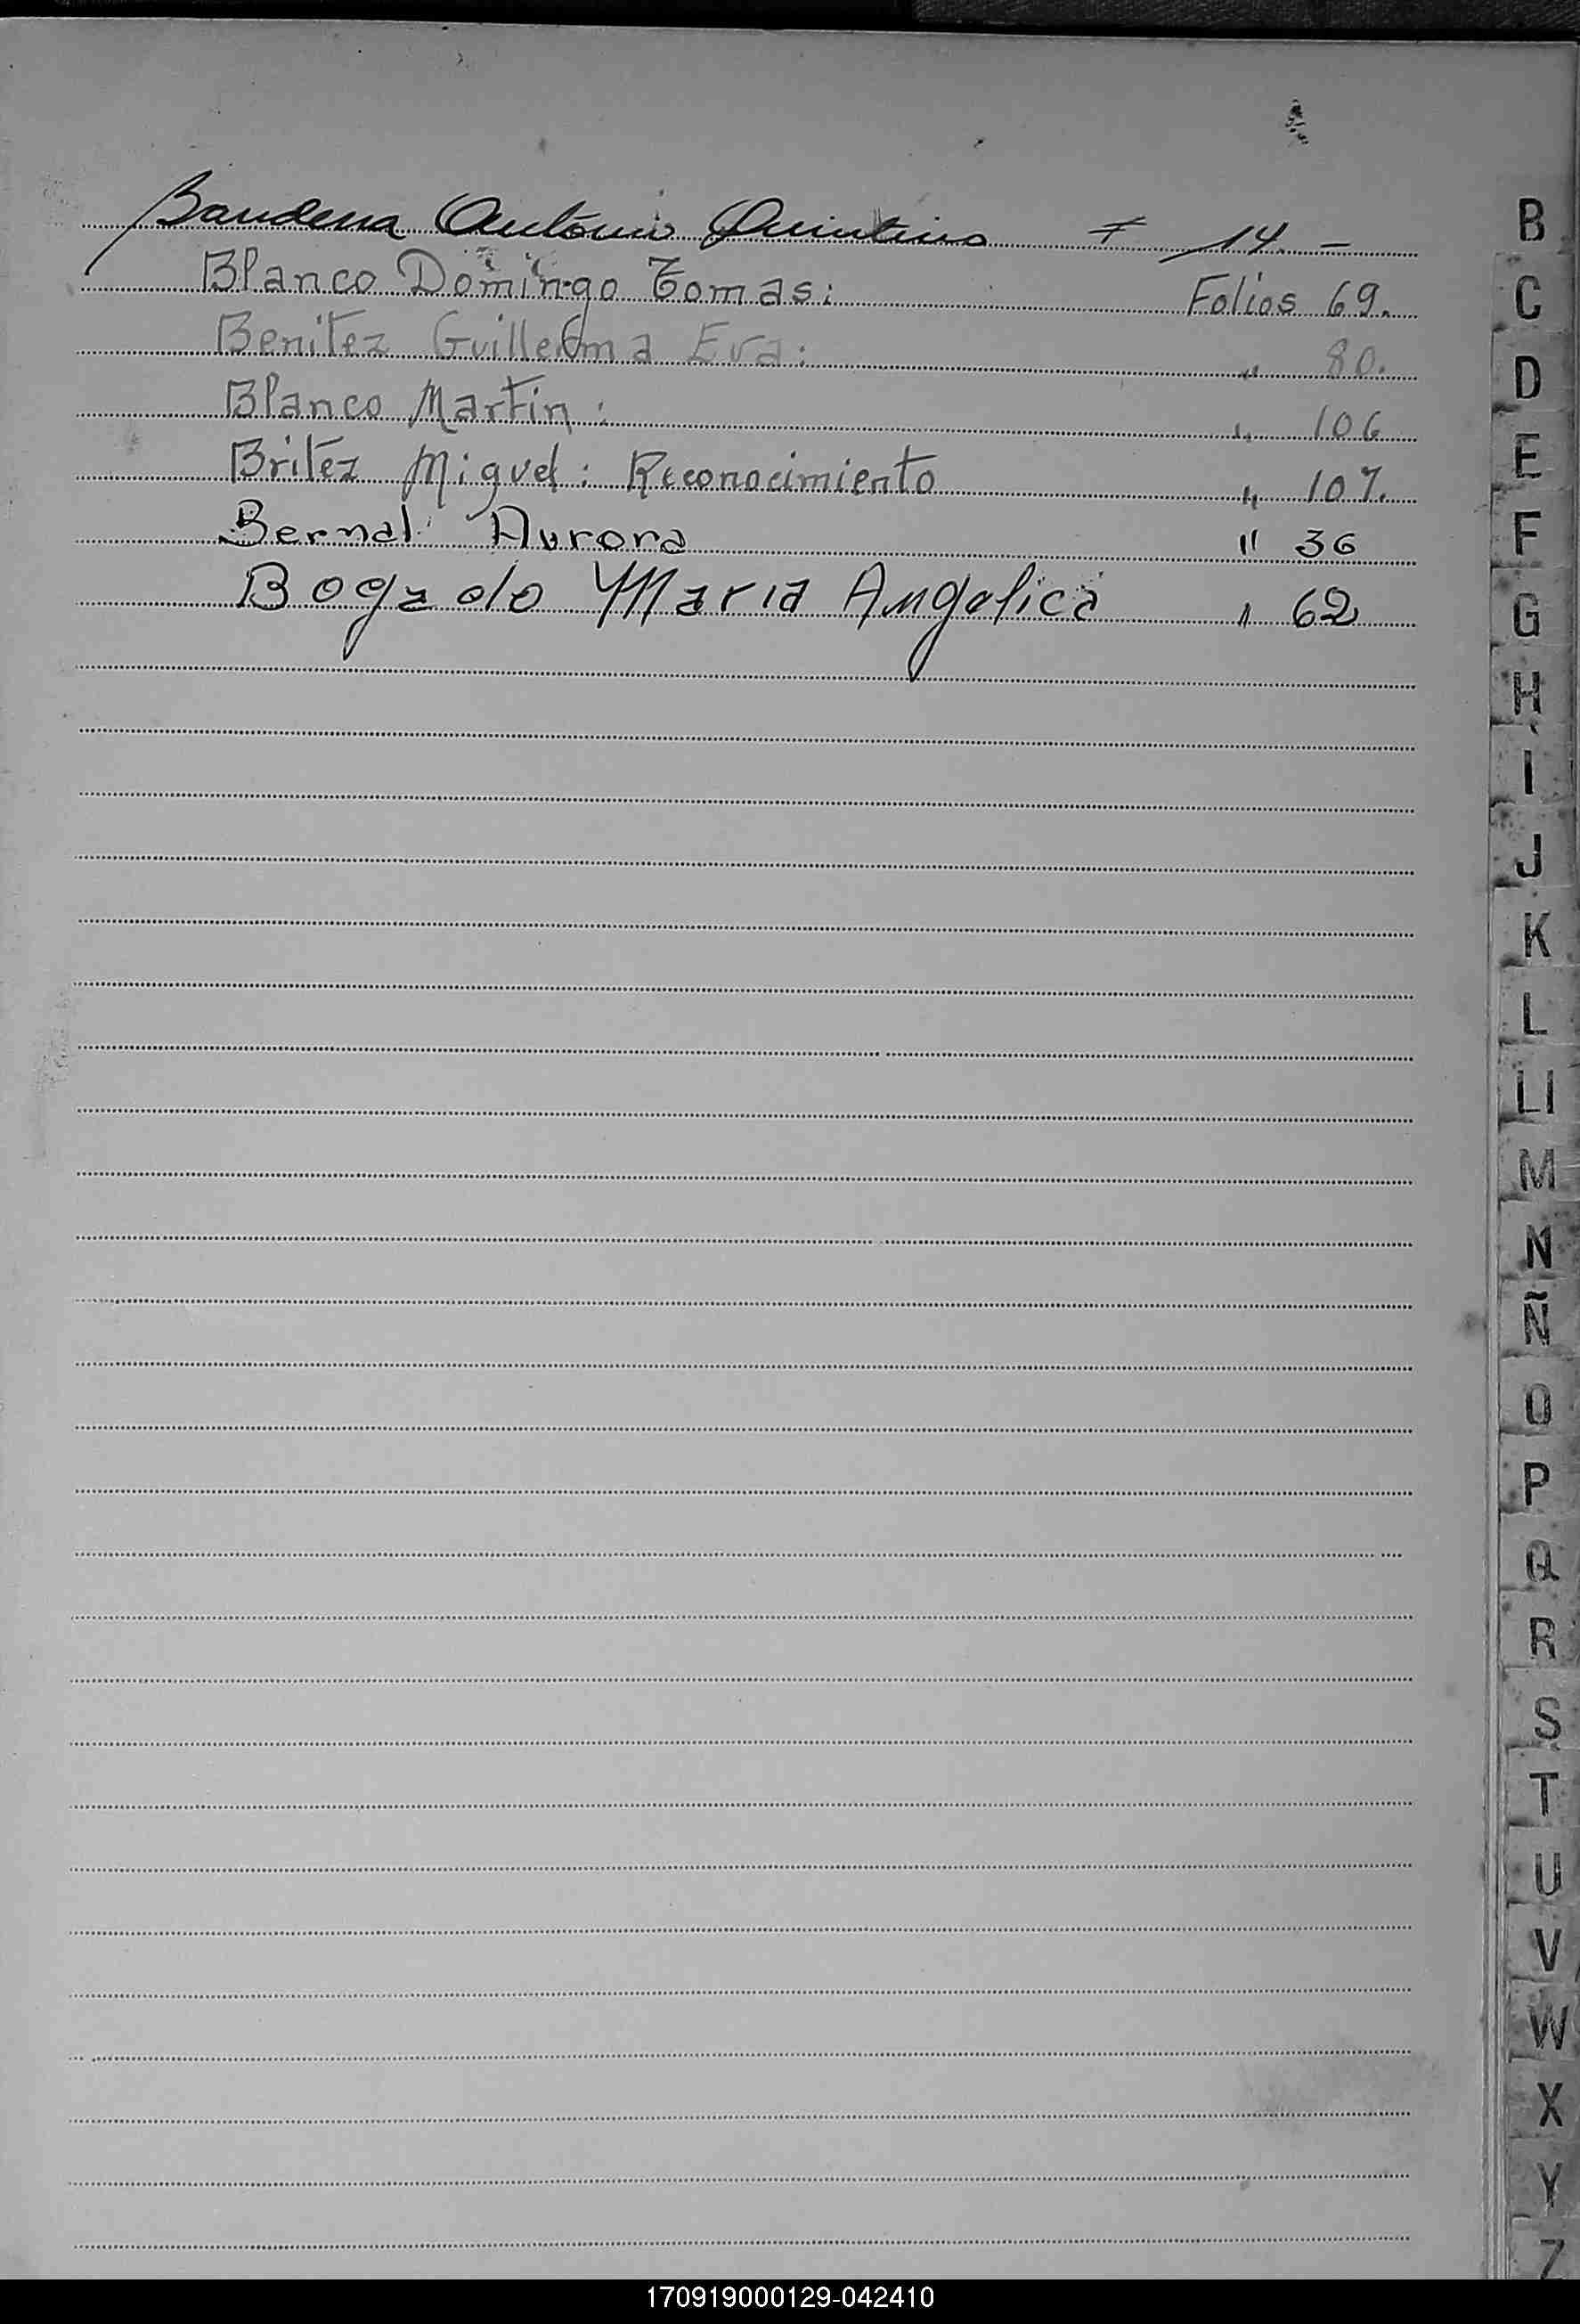 Bandera Antonio Quintino F 14. -
Blanco Domingo Tomas: Folios 69.
Benitez Guillerma Eva: " 80.
Blanco Martin: " 106
Britez Miguel: Reconocimiento " 107.
Bernal Aurora " 36
Bogado Maria Angelica " 62
B
C
D
E
F
G
H
I
J
K
L
Ll
M
N
Ñ
O
P
Q
R
S
T
U
V
W
X
Y
Z
170919000129-042410